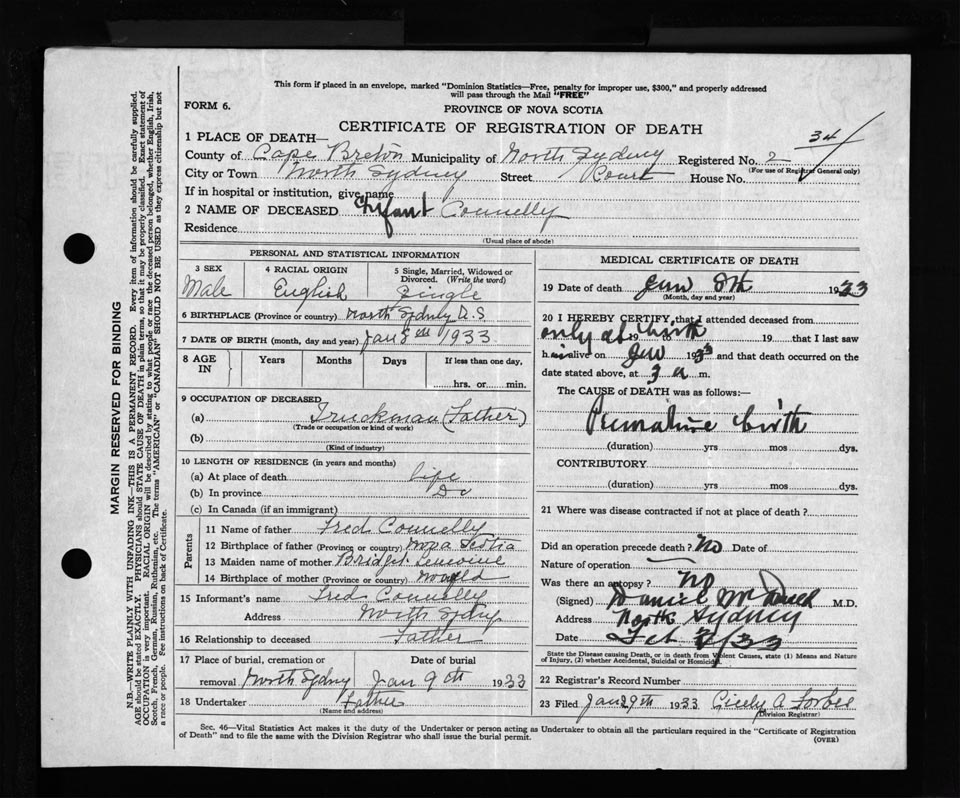 This form if placed in an envelope, marked "Dominion Statistics—Free, penalty for improper use, $300," and properly addressed
will pass through the Mail "FREE"
FORM 6.
PROVINCE OF NOVA SCOTIA
CERTIFICATE OF REGISTRATION OF DEATH
34
1 PLACE OF DEATH—
County of Cape Breton Municipality of North Sydney Registered No. 2
(For use of Registrar General only)
City or Town North Sydney Street Court House No.
If in hospital or institution, give name
2 NAME OF DECEASED Infant Connelly
Residence
(Usual place of abode)
PERSONAL AND STATISTICAL INFORMATION
3 SEX
Male
4 RACIAL ORIGIN
English
5 Single, Married, Widowed or
Divorced. (Write the word)
Single
6 BIRTHPLACE (Province or country) North Sydney N.S
7 DATE OF BIRTH (month, day and year) Jan 8th 1933
8 AGE
IN
Years
Months
Days
If less than one day,
hrs. or min.
9 OCCUPATION OF DECEASED
(a) Truckman (Father)
(Trade or occupation or kind of work)
(b)
(Kind of industry)
10 LENGTH OF RESIDENCE (in years and months)
(a) At place of death life
(b) In province Do
(c) In Canada (if an immigrant)
Parents
11 Name of father Fred Connelly
12 Birthplace of father (Province or country) Nova Scotia
13 Maiden name of mother Bridget
14 Birthplace of mother (Province or country) Nfld
15 Informant's name Fred Connelly
Address North Sydney
16 Relationship to deceased Father
17 Place of burial, cremation or
removal North Sydney
Date of burial
Jan 9th 1933
18 Undertaker Father
(Name and address)
MEDICAL CERTIFICATE OF DEATH
19 Date of death Jan 8th 1933
(Month, day and year)
20 I HEREBY CERTIFY, that I attended deceased from
only at birth 19 to 19 that I last saw
him alive on Jan 1933 and that death occurred on
date stated above, at 3 a m.
The CAUSE of DEATH was as follows:
Premature birth
(duration) yrs mos dys.
CONTRIBUTORY
(duration) yrs mos dys.
21 Where was disease contracted if not at place of death?
Did an operation precede death? No Date of
Nature of operation —
Was there an autopsy? No
(Signed) Daniel M.D.
Address North Sydney
Date Feb /33
State the Disease causing Death, or in death from Violent Causes, state (1) Means and Nature
of Injury, (2) whether Accidental, Suicidal or Homicidal.
22 Registrar's Record Number
23 Filed Jan 29th 1933 Cicely A Forbes
(Division Registrar)
Sec. 46—Vital Statistics Act makes it the duty of the Undertaker or person acting as Undertaker to obtain all the particulars required in the "Certificate of Registration
of Death" and to file the same with the Division Registrar who shall issue the burial permit.
(OVER)
MARGIN RESERVED FOR BINDING
N.B.—WRITE PLAINLY WITH UNFADING INK—THIS IS A PERMANENT RECORD. Every item of information should be carefully supplied.
AGE should be stated EXACTLY. PHYSICIANS should STATE CAUSE OF DEATH in plain terms, so that it may be properly classified. Exact statement of
OCCUPATION is very important. RACIAL ORIGIN will be described by stating to what people or race the deceased person belonged, whether English, Irish,
Scotch, French, German, Russian, Ruthenian, etc. The terms "AMERICAN" or "CANADIAN" SHOULD NOT BE USED as they express citizenship but not
a race or people. See instructions on back of Certificate.